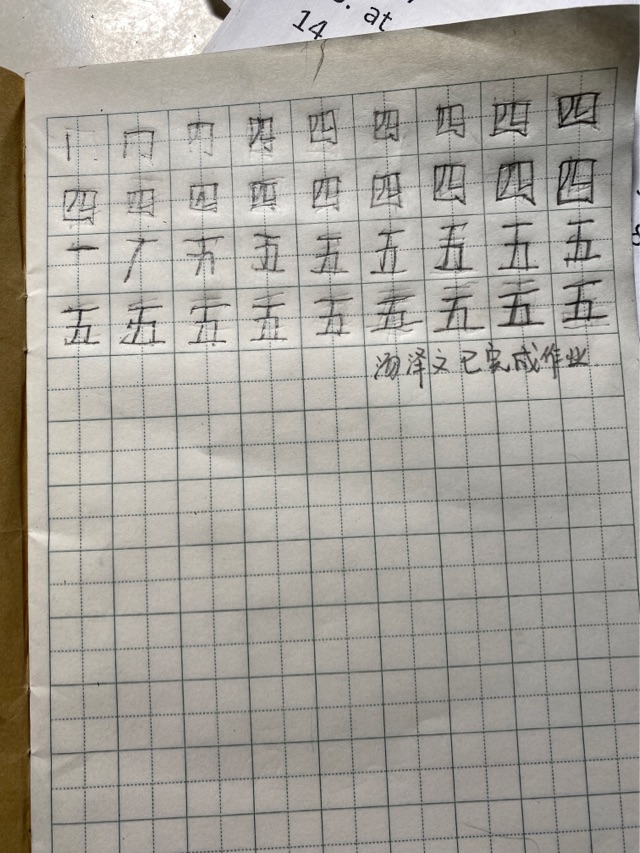 at
14
丨 冂 四 四 四 四 四 四
四 四 四 四 四 四 四 四 四
一 丆 五 五 五 五 五 五
五 五 五 五 五 五 五 五 五
泽文已完成作业